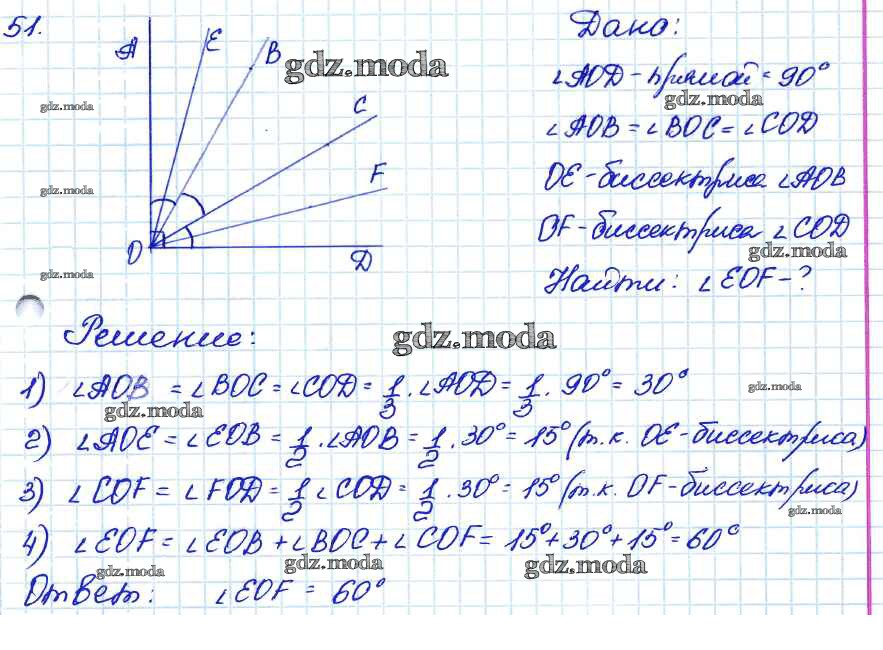 51.
A E B C F D O
gdz.moda
gdz.moda
gdz.moda
gdz.moda
Дано:
∠AOD - прямой = 90°
gdz.moda
∠AOB = ∠BOC = ∠COD
OE - биссектриса ∠AOB
OF - биссектриса ∠COD
gdz.moda
Найти: ∠EOF - ?
Решение:
gdz.moda
1) ∠AOB = ∠BOC = ∠COD = 1/3 · ∠AOD = 1/3 · 90° = 30°
gdz.moda
gdz.moda
2) ∠AOE = ∠EOB = 1/2 · ∠AOB = 1/2 · 30° = 15° (т.к. OE - биссектриса)
3) ∠COF = ∠FOD = 1/2 ∠COD = 1/2 · 30° = 15° (т.к. OF - биссектриса)
gdz.moda
4) ∠EOF = ∠EOB + ∠BOC + ∠COF = 15° + 30° + 15° = 60°
gdz.moda
gdz.moda
gdz.moda
Ответ: ∠EOF = 60°